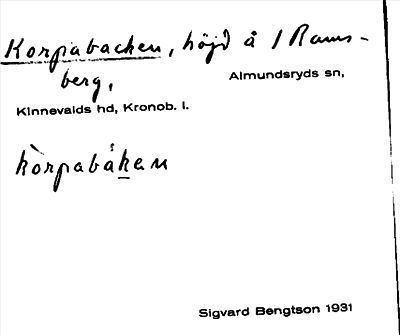 Korpabacken, höjd å 1 Rams-
berg,
Almundsryds sn,
Kinnevalds hd, Kronob. l.
kòrpabåken
Sigvard Bengtson 1931